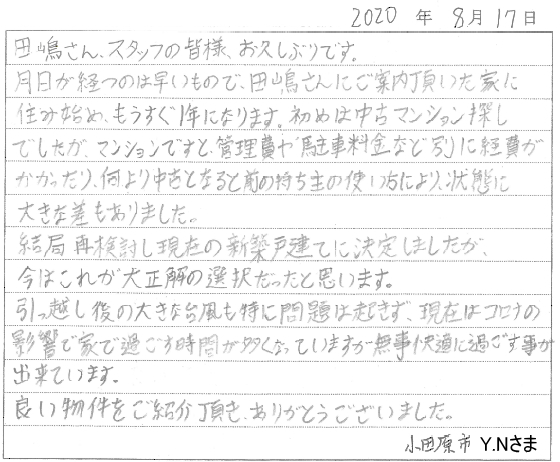 2020 年 8月 17日
田嶋さん、スタッフの皆様、お久しぶりです。
月日が経つのは早いもので、田嶋さんにご案内頂いた家に
住み始め、もうすぐ1年になります。初めは中古マンション探し
でしたが、マンションですと、管理費や駐車料金など別に経費が
かかったり、何より中古となると前の持ち主の使い方により、状態に
大きな差もありました。
結局再検討し現在の新築戸建てに決定しましたが、
今はこれが大正解の選択だったと思います。
引っ越し後の大きな台風も特に問題は起きず、現在はコロナの
影響で家で過ごす時間が多くなっていますが無事快適に過ごす事が
出来ています。
良い物件をご紹介頂き、ありがとうございました。
小田原市 Y.Nさま